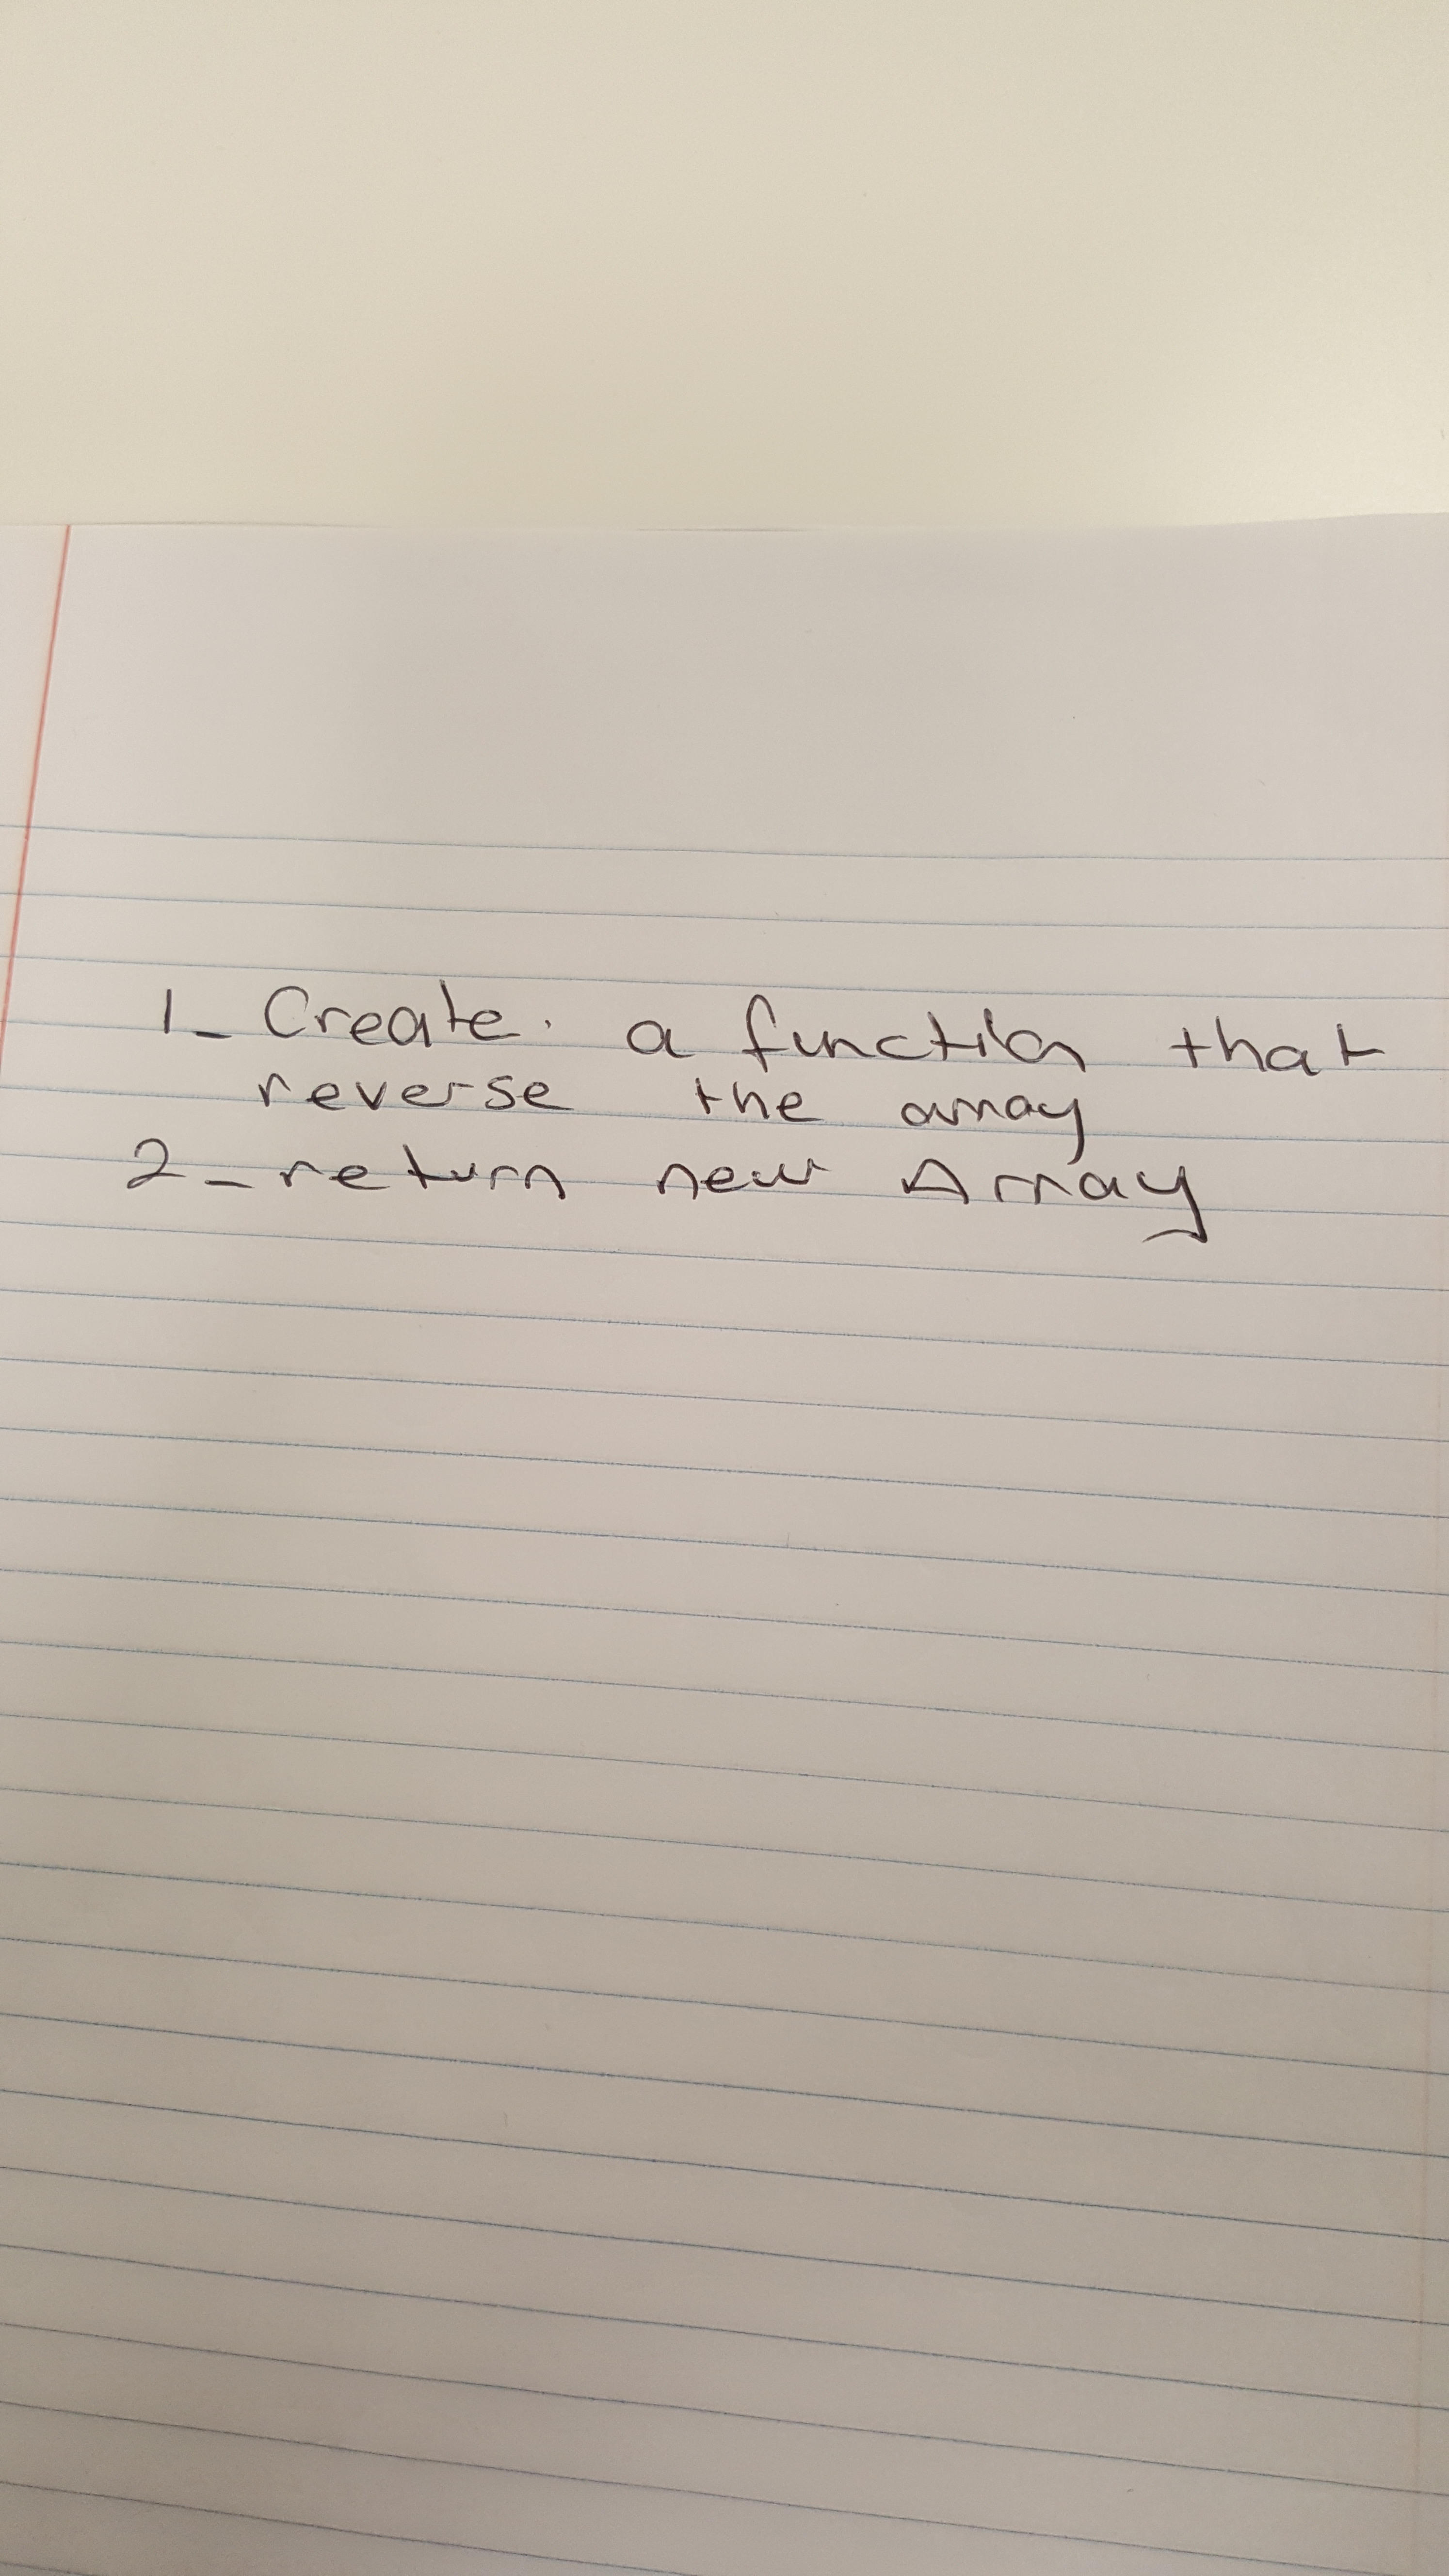 1_ Create. a function that
reverse the array
2_ return new Array